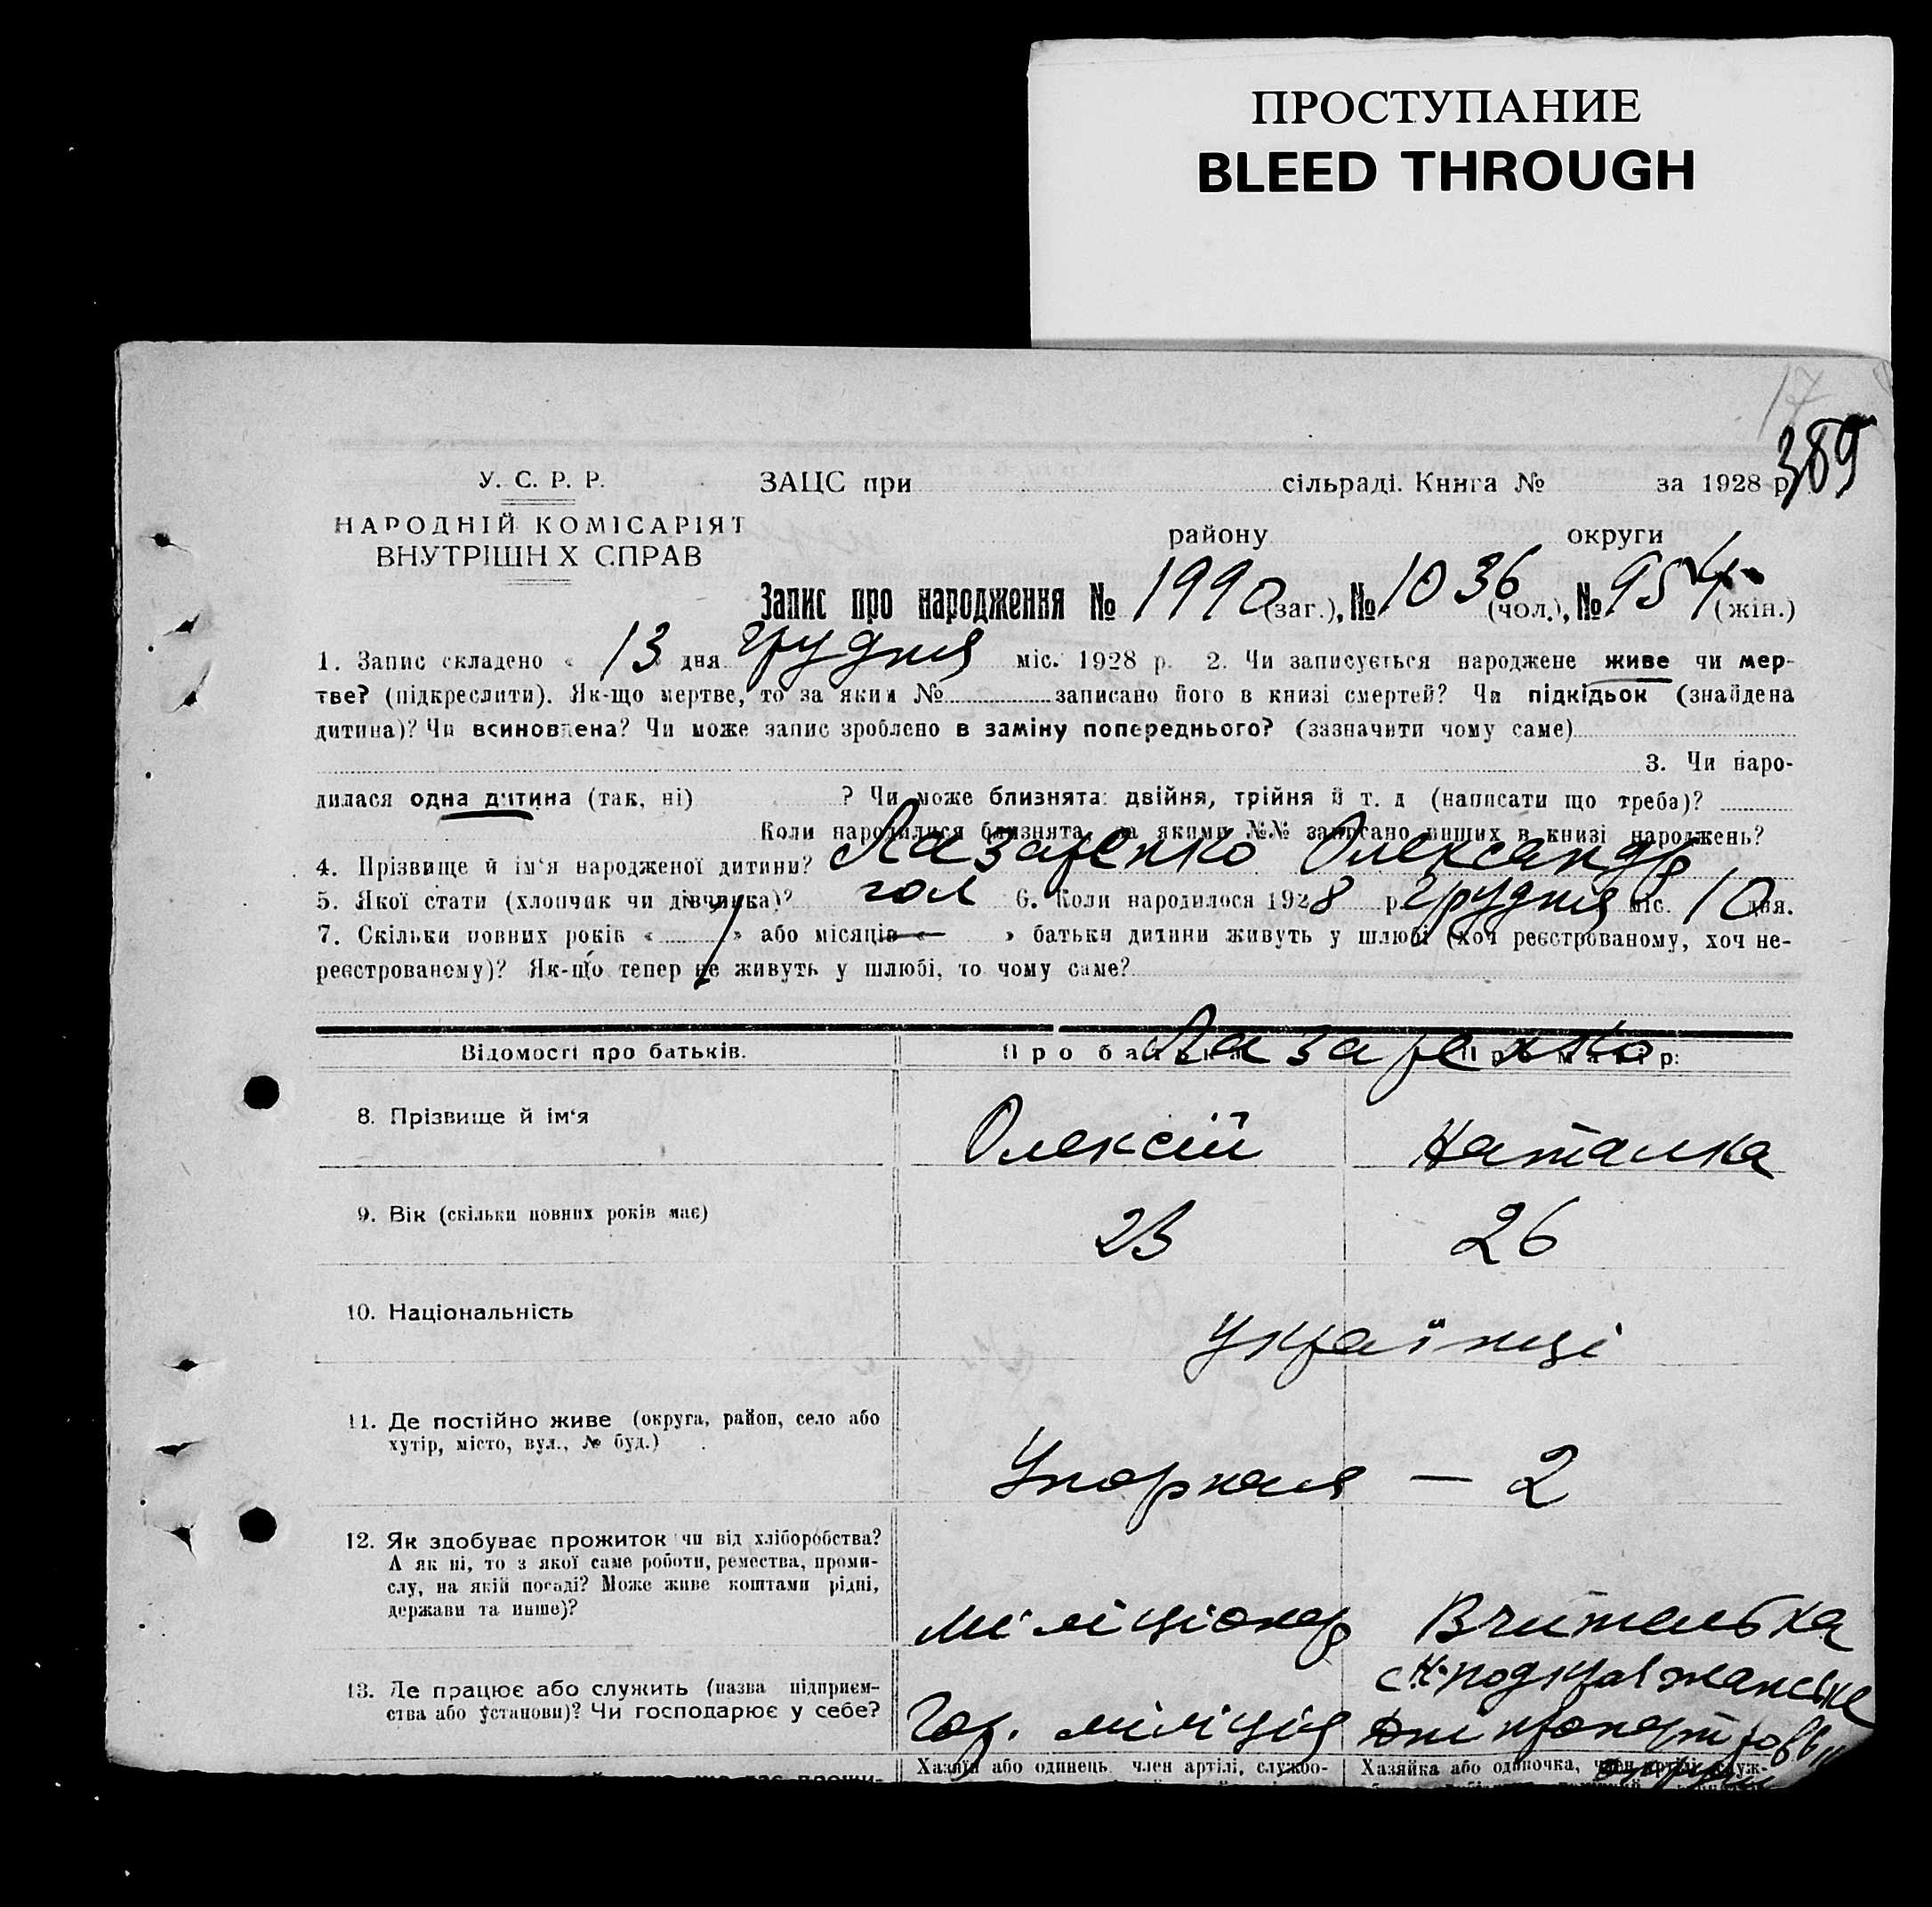 ПРОСТУПАНИЕ
BLEED THROUGH
17
389
У. С. Р. Р.
НАРОДНІЙ КОМІСАРІЯТ
ВНУТРІШН Х СПРАВ
ЗАЦС при сільраді. Книга № за 1928 р.
району округи
Запис про народження № 1990 (заг.), № 1036 (чол.), № 954 (жін.)
1. Запис складено « 13 » дня грудня міс. 1928 р. 2. Чи записується народжене живе чи мер-
тве? (підкреслити). Як-що мертве, то за яким № записано його в книзі смертей? Чи підкідьок (знайдена
дитина)? Чи всиновлена? Чи може запис зроблено в заміну попереднього? (зазначити чому саме)
3. Чи наро-
дилася одна дитина (так, ні) ? Чи може близнята: двійня, трійня й т. д (написати що треба)?
Коли народилися близнята, за якими №№ записано инших в книзі народжень?
4. Прізвище й ім'я народженої дитини? Лазаренко Олександр
5. Якої стати (хлопчик чи дівчинка)? чол 6. Коли народилося 1928 р. грудня міс. 10 дня.
7. Скільки повних років « 1 » або місяців « — » батьки дитини живуть у шлюбі (хоч реєстрованому, хоч не-
реєстрованому)? Як-що тепер не живуть у шлюбі, то чому саме?
Відомості про батьків. Про батька Про матір:
Лазаренко
8. Прізвище й ім'я Олексій Наталка
9. Вік (скільки повних років має) 23 26
10. Національність Українці
11. Де постійно живе (округа, район, село або
хутір, місто, вул., № буд.)
Упорная — 2
12. Як здобуває прожиток чи від хліборобства?
А як ні, то з якої саме роботи, ремества, проми-
слу, на якій посаді? Може живе коштами рідні,
держави та инше)?
міліціонер Вчителька
13. Де працює або служить (назва підприєм-
ства або установи)? Чи господарює у себе?
Гор. міліція
округи
Хазяїн або одинець, член артілі, службо-
Хазяйка або одиночка, член артілі, служ-